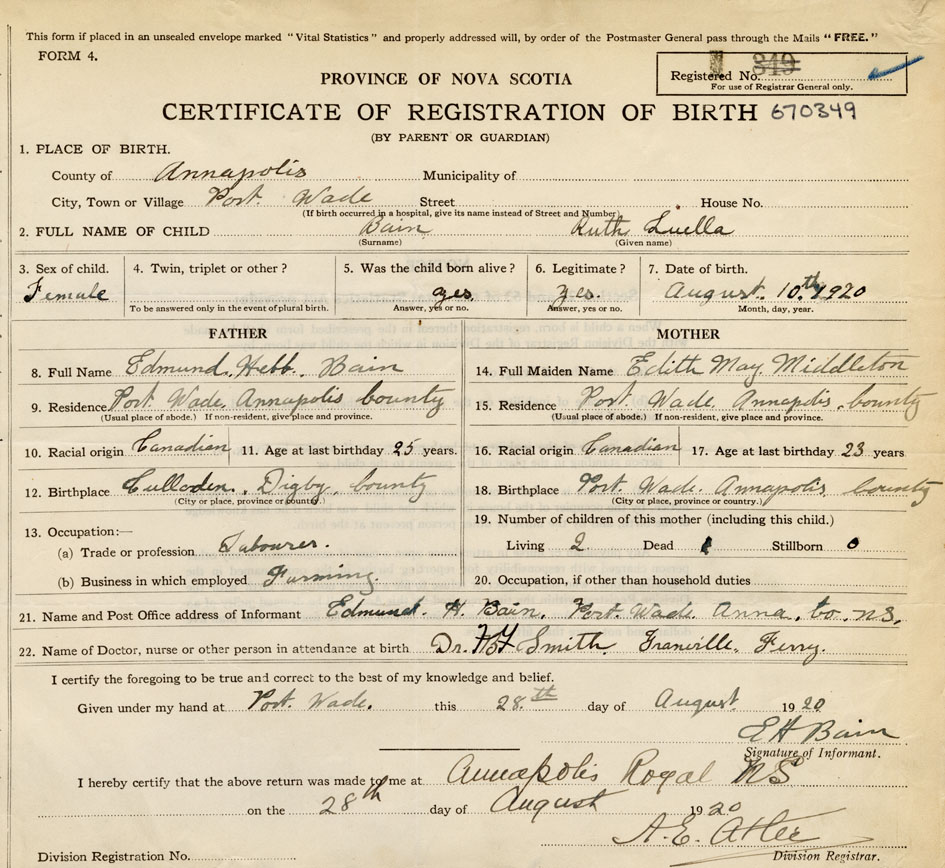 This form if placed in an unsealed envelope marked "Vital Statistics" and properly addressed will, by order of the Postmaster General pass through the Mails "FREE."
FORM 4.
Registered No. 349
For use of Registrar General only.
PROVINCE OF NOVA SCOTIA
CERTIFICATE OF REGISTRATION OF BIRTH 670349
(BY PARENT OR GUARDIAN)
1. PLACE OF BIRTH.
County of Annapolis Municipality of
City, Town or Village Port Wade Street House No.
(If birth occurred in a hospital, give its name instead of Street and Number)
2. FULL NAME OF CHILD Bain Ruth Luella
(Surname) (Given name)
3. Sex of child. 4. Twin, triplet or other? 5. Was the child born alive? 6. Legitimate? 7. Date of birth.
Female yes. Yes. August. 10.th 1920
To be answered only in the event of plural birth. Answer, yes or no. Answer, yes or no. Month, day, year.
FATHER MOTHER
8. Full Name Edmund. Hebb. Bain 14. Full Maiden Name Edith May Middleton
9. Residence Port Wade Annapolis county 15. Residence Port. Wade. Annapolis. county
(Usual place of abode.) If non-resident, give place and province. (Usual place of abode.) If non-resident, give place and province.
10. Racial origin Canadian 11. Age at last birthday 25 years. 16. Racial origin Canadian 17. Age at last birthday 23 years
12. Birthplace Culloden. Digby. county 18. Birthplace Port. Wade. Annapolis county
(City or place, province or country.) (City or place, province or country.)
13. Occupation:— 19. Number of children of this mother (including this child.)
(a) Trade or profession Labourer. Living 2 Dead Stillborn 0
(b) Business in which employed Farming. 20. Occupation, if other than household duties
21. Name and Post Office address of Informant Edmund. H. Bain. Port. Wade. Anna. Co. N.S.
22. Name of Doctor, nurse or other person in attendance at birth Dr. Smith. Granville. Ferry.
I certify the foregoing to be true and correct to the best of my knowledge and belief.
Given under my hand at Port. Wade. this 28.th day of August 1920
E H Bain
Signature of Informant.
I hereby certify that the above return was made to me at Annapolis Royal NS
on the 28th day of August 1920
A. E. Atlee
Division Registration No. Division Registrar.